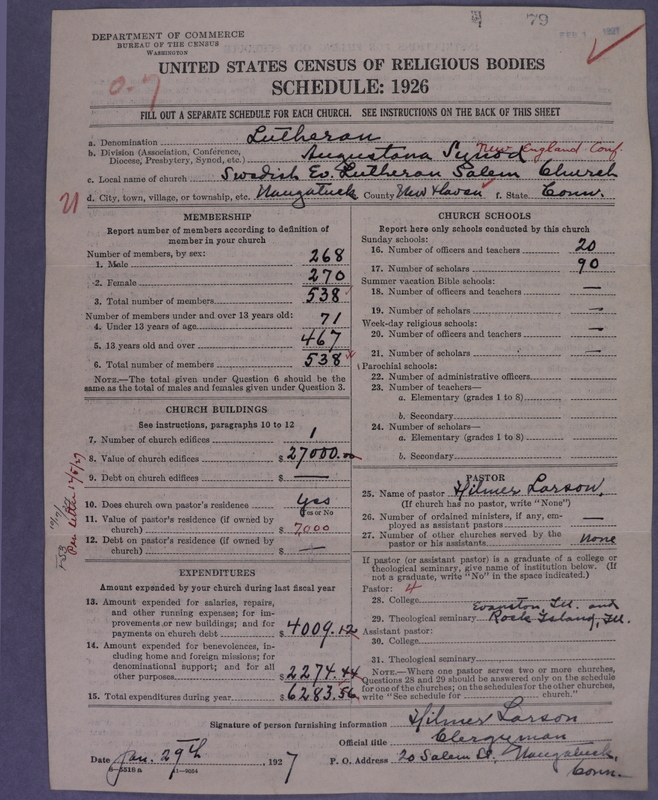 79
DEPARTMENT OF COMMERCE
BUREAU OF THE CENSUS
WASHINGTON
UNITED STATES CENSUS OF RELIGIOUS BODIES
SCHEDULE: 1926
FILL OUT A SEPARATE SCHEDULE FOR EACH CHURCH. SEE INSTRUCTIONS ON THE BACK OF THIS SHEET
a. Denomination Lutheran
b. Division (Association, Conference, Diocese, Presbytery, Synod, etc.) Augustana Synod New England Conf.
c. Local name of church Swedish Ev. Lutheran Salem Church
d. City, town, village, or township, etc. Naugatuck County New Haven f. State Conn.
MEMBERSHIP
Report number of members according to definition of
member in your church
Number of members, by sex:
1. Male 268
2. Female 270
3. Total number of members 538
Number of members under and over 13 years old:
4. Under 13 years of age 71
5. 13 years old and over 467
6. Total number of members 538
NOTE.—The total given under Question 6 should be the
same as the total of males and females given under Question 3.
CHURCH BUILDINGS
See instructions, paragraphs 10 to 12
7. Number of church edifices 1
8. Value of church edifices $27000.00
9. Debt on church edifices $ —
10. Does church own pastor's residence Yes
Yes or No
11. Value of pastor's residence (if owned by
church) $ 7000
12. Debt on pastor's residence (if owned by
church) $ —
Per letter 12/5/27
EXPENDITURES
Amount expended by your church during last fiscal year
13. Amount expended for salaries, repairs,
and other running expenses; for im-
provements or new buildings; and for
payments on church debt $4009.12
14. Amount expended for benevolences, in-
cluding home and foreign missions; for
denominational support; and for all
other purposes $2274.44
15. Total expenditures during year $6283.56
CHURCH SCHOOLS
Report here only schools conducted by this church
Sunday schools:
16. Number of officers and teachers 20
17. Number of scholars 90
Summer vacation Bible schools:
18. Number of officers and teachers —
19. Number of scholars —
Week-day religious schools:
20. Number of officers and teachers —
21. Number of scholars —
Parochial schools:
22. Number of administrative officers
23. Number of teachers—
a. Elementary (grades 1 to 8)
b. Secondary
24. Number of scholars—
a. Elementary (grades 1 to 8)
b. Secondary
PASTOR
25. Name of pastor Hilmer Larson,
(If church has no pastor, write "None")
26. Number of ordained ministers, if any, em-
ployed as assistant pastors —
27. Number of other churches served by the
pastor or his assistants None
If pastor (or assistant pastor) is a graduate of a college or
theological seminary, give name of institution below. (If
not a graduate, write "No" in the space indicated.)
Pastor: 4
28. College
Evanston, Ill. and
29. Theological seminary Rock Island, Ill.
Assistant pastor:
30. College
31. Theological seminary
NOTE.—Where one pastor serves two or more churches,
Questions 28 and 29 should be answered only on the schedule
for one of the churches; on the schedules for the other churches,
write "See schedule for church."
Signature of person furnishing information Hilmer Larson
Official title Clergyman
Date Jan. 29th, 1927 P. O. Address 20 Salem St. Naugatuck,
Conn.
8—5518 a 11—9034